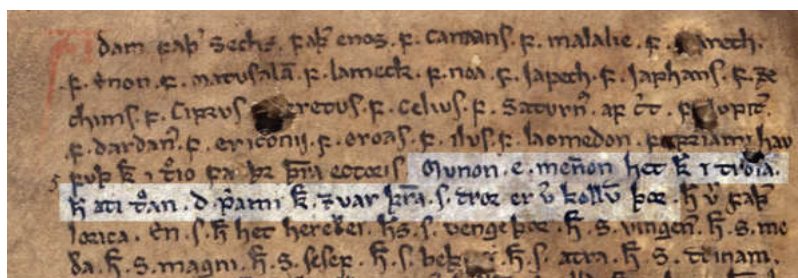 Adam faþ' Sechs. faþ' enos. f. Canaans. f. malalie. f. arech.
f. enon. f. matusalā. f. lamech. f. noa. f. Japech. f. Japhans. f. ze
chims. f. Ciprus cretus. f. Celius. f. Saturn'. f. Iupit'.
f. dardan'. f. ericonij. f. eroas. f. ilus. f. laomedon. f. priami hau
fuþ k̄ i br̄a ectoris. Munon. e. men̄on het k̄ i troia.
h̄ ati d. p'ami k̄. ⁊ var þ'ra. s. tror er v̄ kollv̄ þor. h̄ v' faþ'
lorica. En. s. h̄ het hereðei. h̄s. s. vengeþor. h̄. S. vingen̄. h̄. S. mo
da. h̄. S. magni. h̄. S. sesef. h̄. S. h̄. S. atra. h̄. S. treinam.